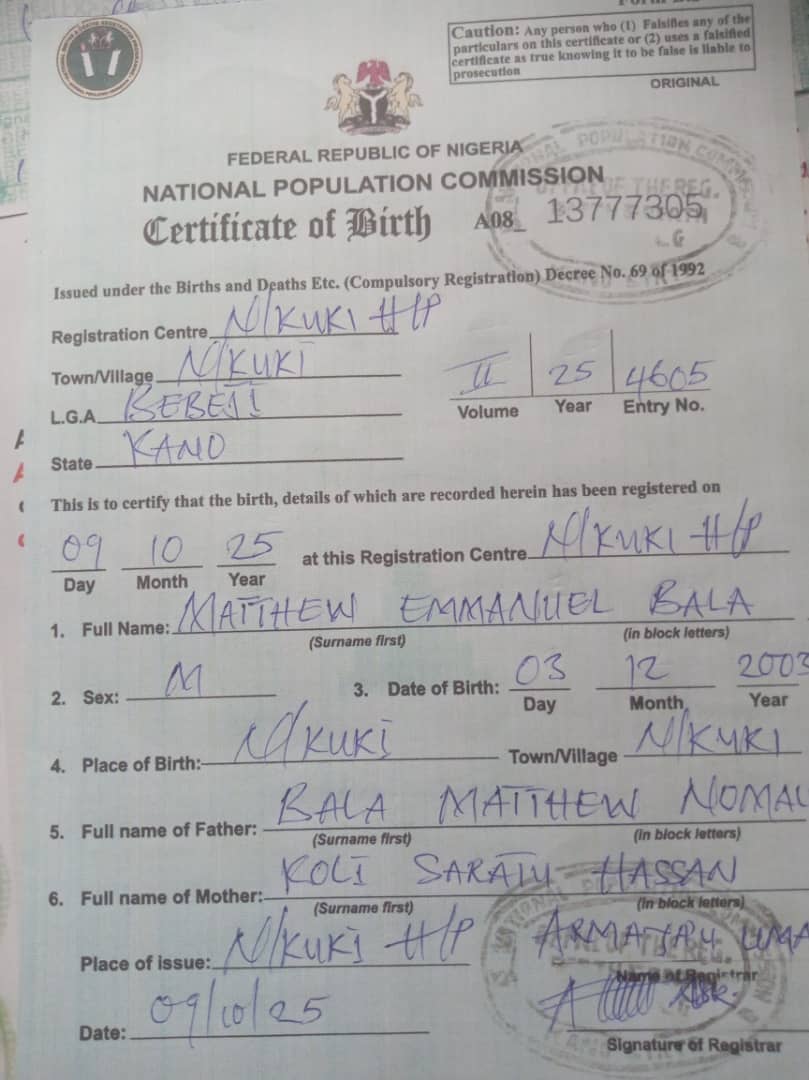 Caution: Any person who (1) Falsifies any of the
particulars on this certificate or (2) uses a falsified
certificate as true knowing it to be false is liable to
prosecution
ORIGINAL
FEDERAL REPUBLIC OF NIGERIA
NATIONAL POPULATION COMMISSION
Certificate of Birth A08_ 13777305
Issued under the Births and Deaths Etc. (Compulsory Registration) Decree No. 69 of 1992
Registration Centre N/KUKI H/P
Town/Village N/KUKI
II 25 4605
Volume Year Entry No.
L.G.A. BEBEJI
State KANO
This is to certify that the birth, details of which are recorded herein has been registered on
09 10 25 at this Registration Centre N/KUKI H/P
Day Month Year
1. Full Name: MATTHEW EMMANUEL BALA
(Surname first) (in block letters)
2. Sex: M 3. Date of Birth: 03 12 2003
Day Month Year
4. Place of Birth: N/KUKI Town/Village N/KUKI
5. Full name of Father: BALA MATTHEW
(Surname first) (in block letters)
6. Full name of Mother: KOLI SARATU HASSAN
(Surname first) (in block letters)
Place of issue: N/KUKI H/P
Name of Registrar
Date: 09/10/25
Signature of Registrar